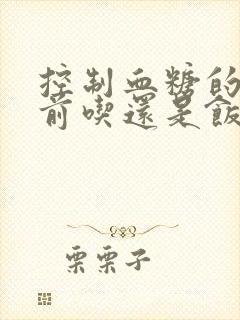 控制血糖的
前喫還是飯
栗栗子